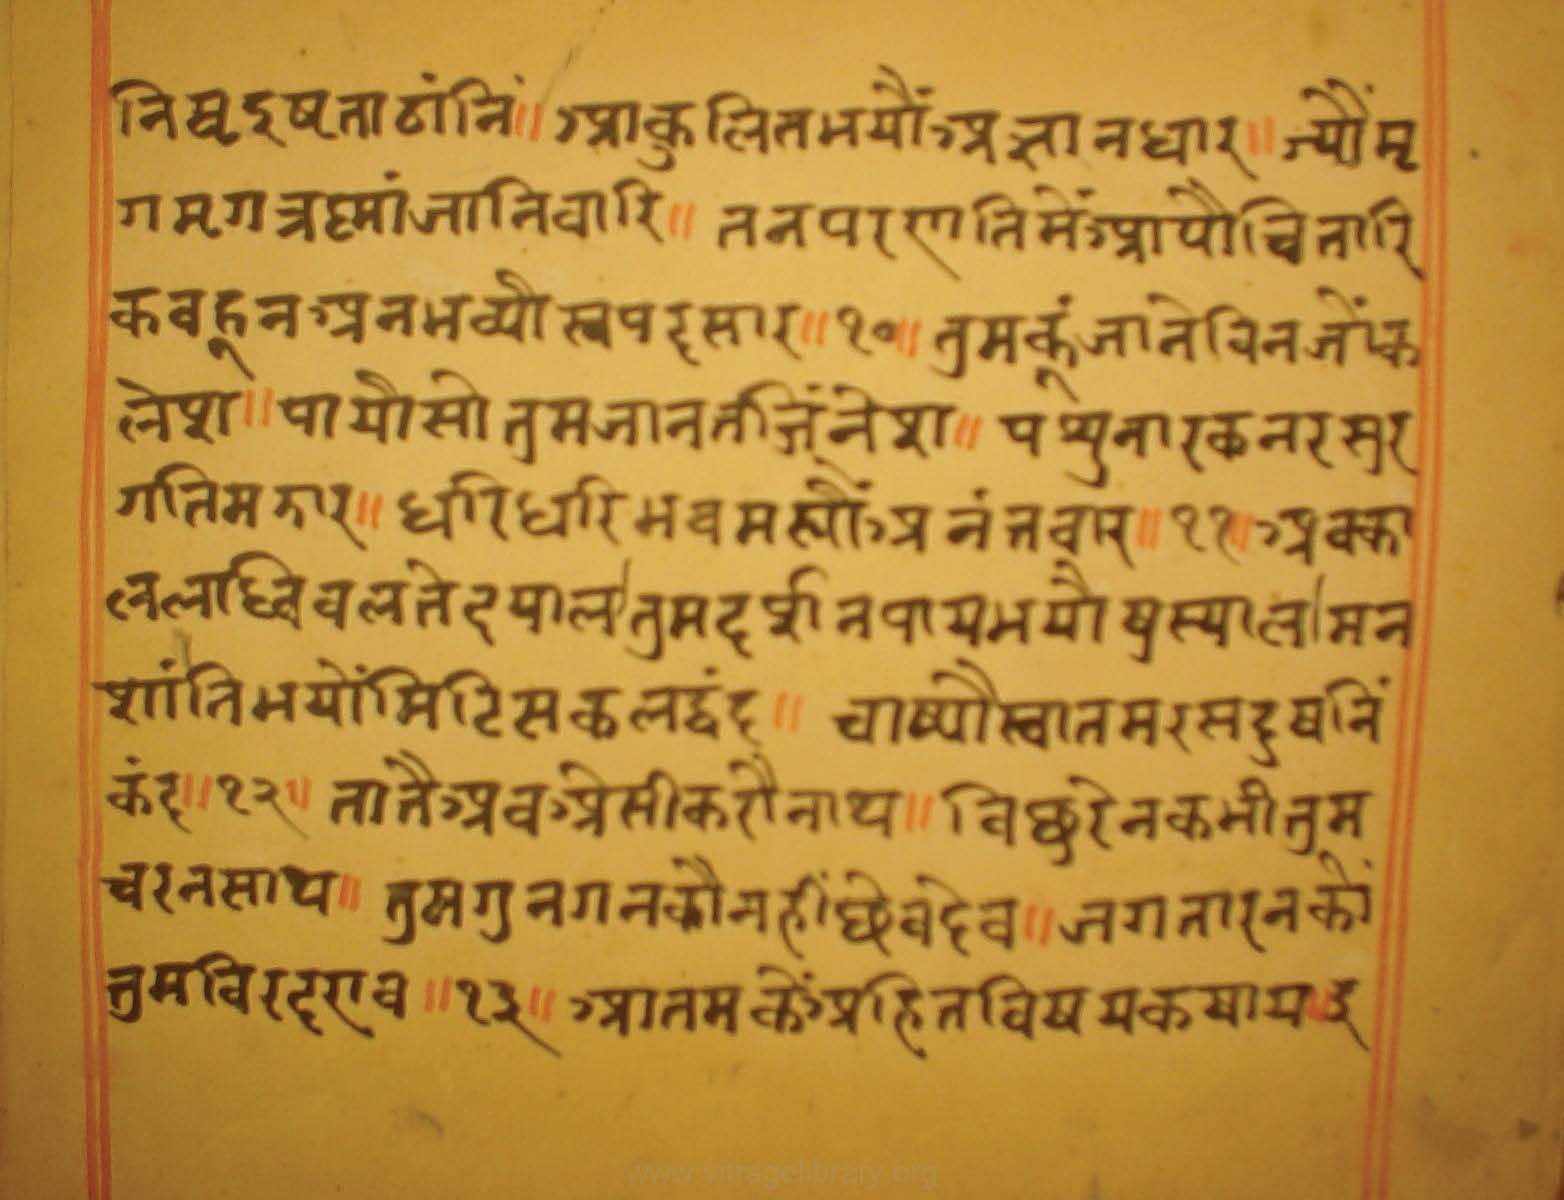 निष्टइष्टताठांनिं॥आकुलितभयौंअज्ञानधार॥ज्यौंमृ
गमृगत्रष्नांजानिवारि॥ तनपरणतिमेंआपौचितारि
कवहूनअनभव्यौस्वपदसार॥१०॥तुमकूंजानेविनजोंक
लेश॥पायौसोतुमजानतजिंनेश॥ पश्युनारकनरसुर
गतिमझार॥धरिधरिभवमर्य्यौंअनंतवार॥११॥अक्का
ललाब्धिवलतेदयाल।तुमदर्शनपायभयौषुस्याल।मन
शांतिभयोंमिटिसकलद्वंद॥ चाष्यौस्वातमरसदुषनिं
कंद॥१२॥ तातैअवअेसीकरौनाथ॥विछुरेनकभीतुम
चरनसाथ॥ तुमगुनगनकौनहींछेवदेव॥जगतारनकौं
तुमविरदएव॥१३॥ आतमकेंअहितविषयकषाय॥इ
www.jainelibrary.org